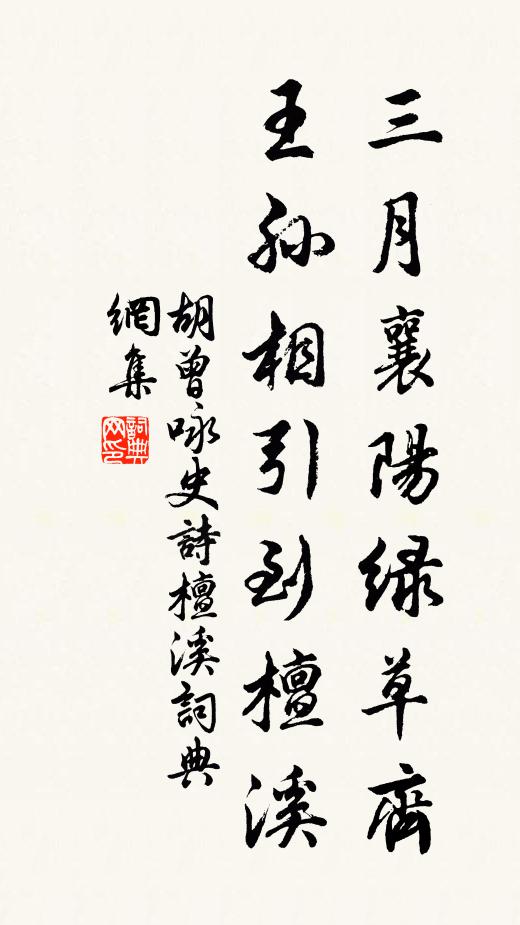 三月襄陽緑草齊
王孫相引到檀溪
胡曾咏史詩檀溪詞典
網集
詞典
网印